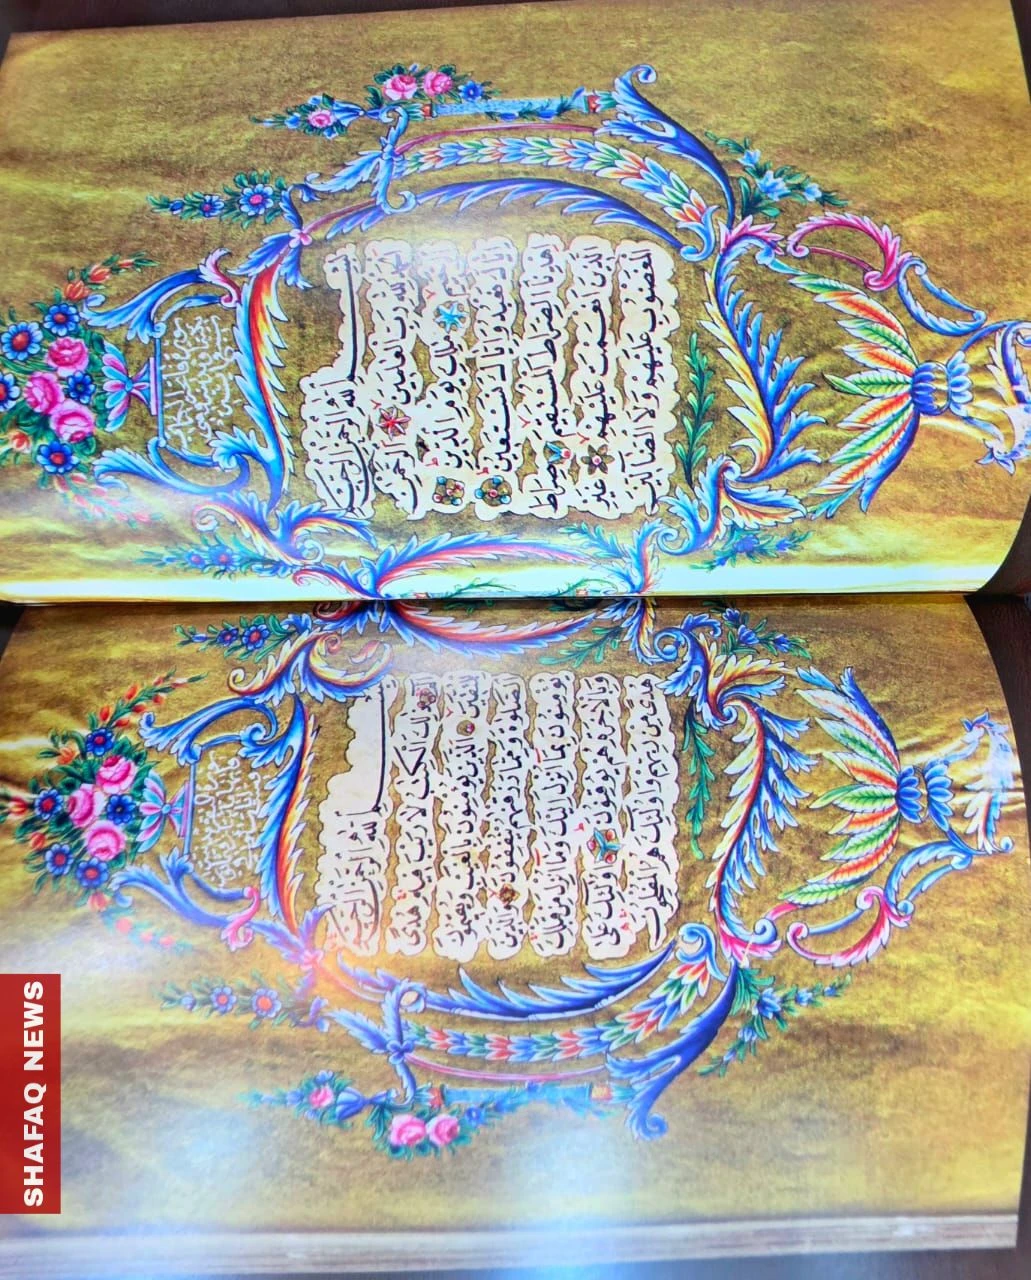 سورة فاتحة الكتاب
بسم الله الرحمن الرحيم
الحمد لله رب العلمين الرحمن
الرحيم ملك يوم الدين
اياك نعبد واياك نستعين
اهدنا الصراط المستقيم صراط
الذين انعمت عليهم غير
المغضوب عليهم ولا الضالين
بسم الله الرحمن الرحيم
الم ذلك الكتب لا ريب فيه هدى
للمتقين الذين يؤمنون بالغيب ويقيمون
الصلوة ومما رزقنهم ينفقون والذين
يؤمنون بما انزل اليك وما انزل من قبلك
وبالاخرة هم يوقنون اولئك على
هدى من ربهم واولئك هم المفلحون
SHAFAQ NEWS